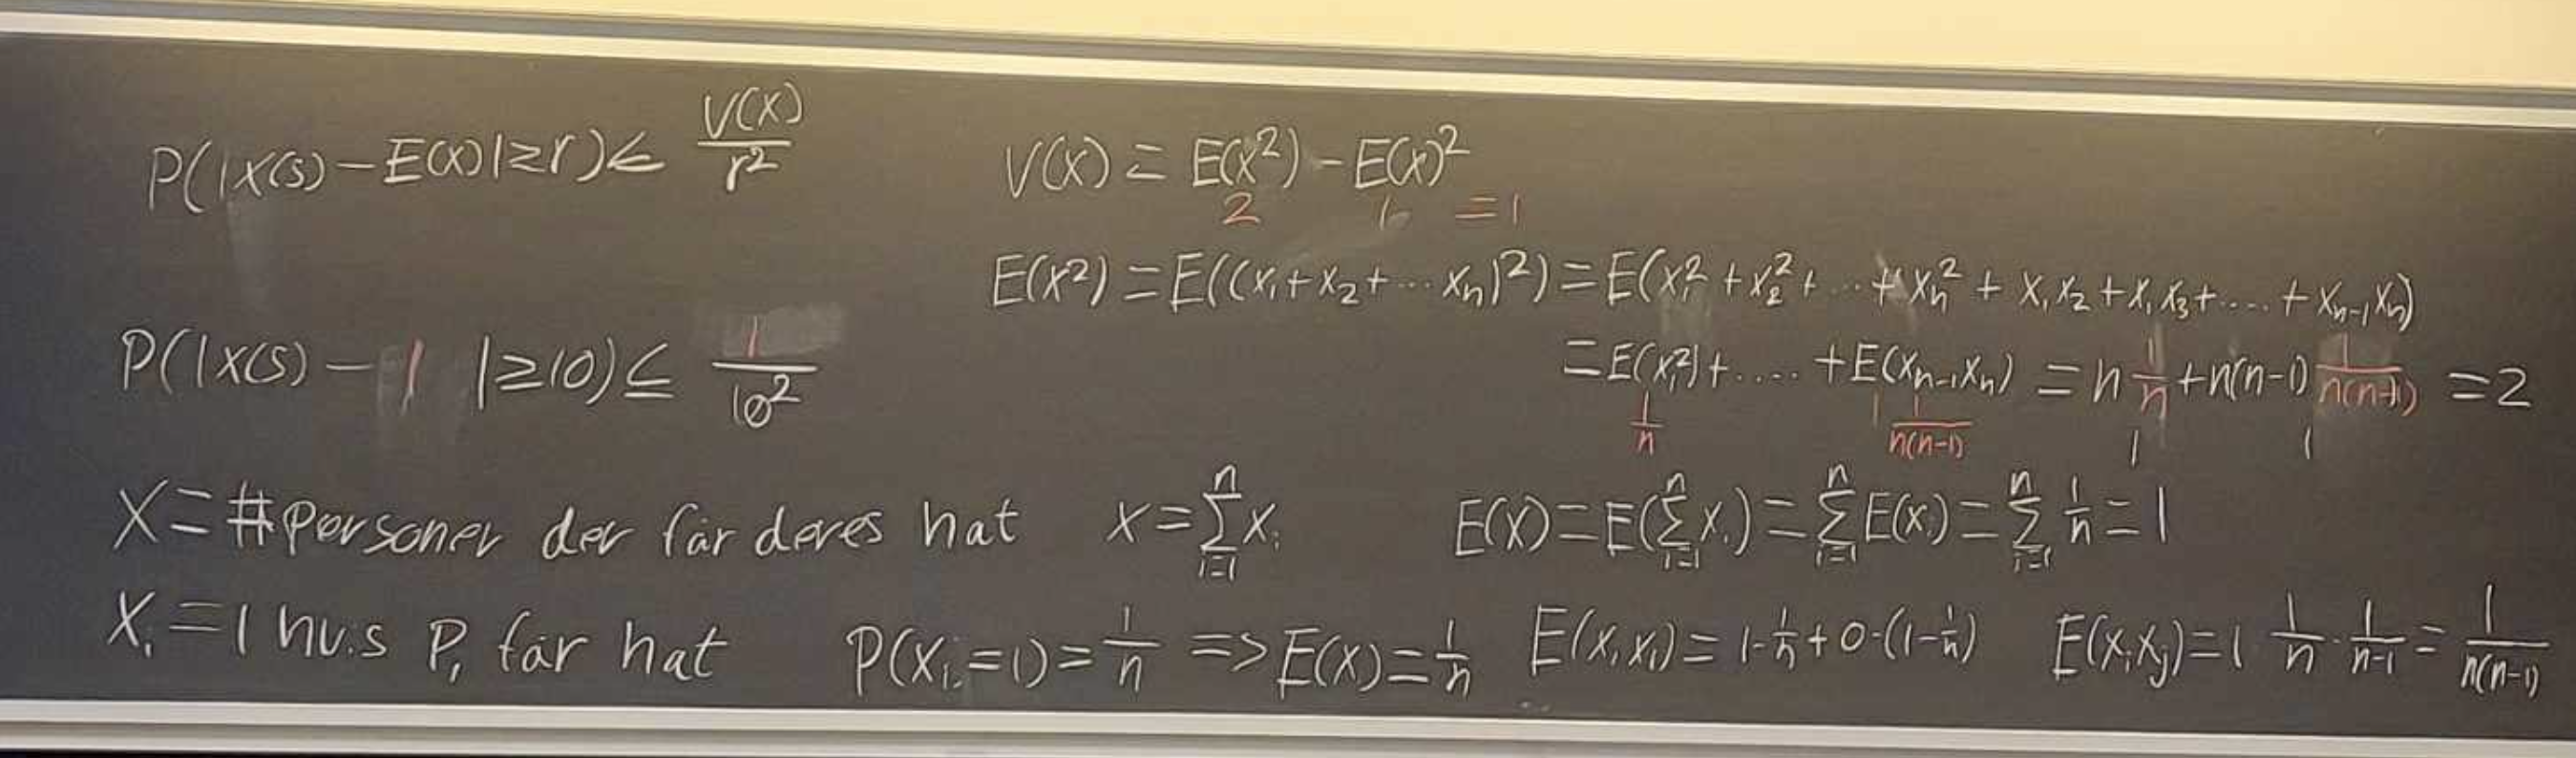 P(|X(s) − E(X)| ≥ r) ≤ V(X)/r²
V(X) = E(X²) − E(X)²
2 1 = 1
E(X²) = E((X₁ + X₂ + ··· Xₙ)²) = E(X₁² + X₂² + ··· + Xₙ² + X₁X₂ + X₁X₃ + ···· + Xₙ₋₁Xₙ)
= E(X₁²) + ···· + E(Xₙ₋₁Xₙ) = n 1/n + n(n−1) 1/(n(n−1)) = 2
1/n 1/(n(n−1)) 1 1
P(|X(s) − 1 | ≥ 10) ≤ 1/10²
X = #personer der får deres hat X = ∑ᵢ₌₁ⁿ Xᵢ E(X) = E(∑ᵢ₌₁ⁿ Xᵢ) = ∑ᵢ₌₁ⁿ E(Xᵢ) = ∑ᵢ₌₁ⁿ 1/n = 1
Xᵢ = 1 hvis Pᵢ får hat P(Xᵢ = 1) = 1/n => E(X) = 1/n E(XᵢXᵢ) = 1·1/n + 0·(1−1/n) E(XᵢXⱼ) = 1 1/n · 1/(n−1) = 1/(n(n−1))